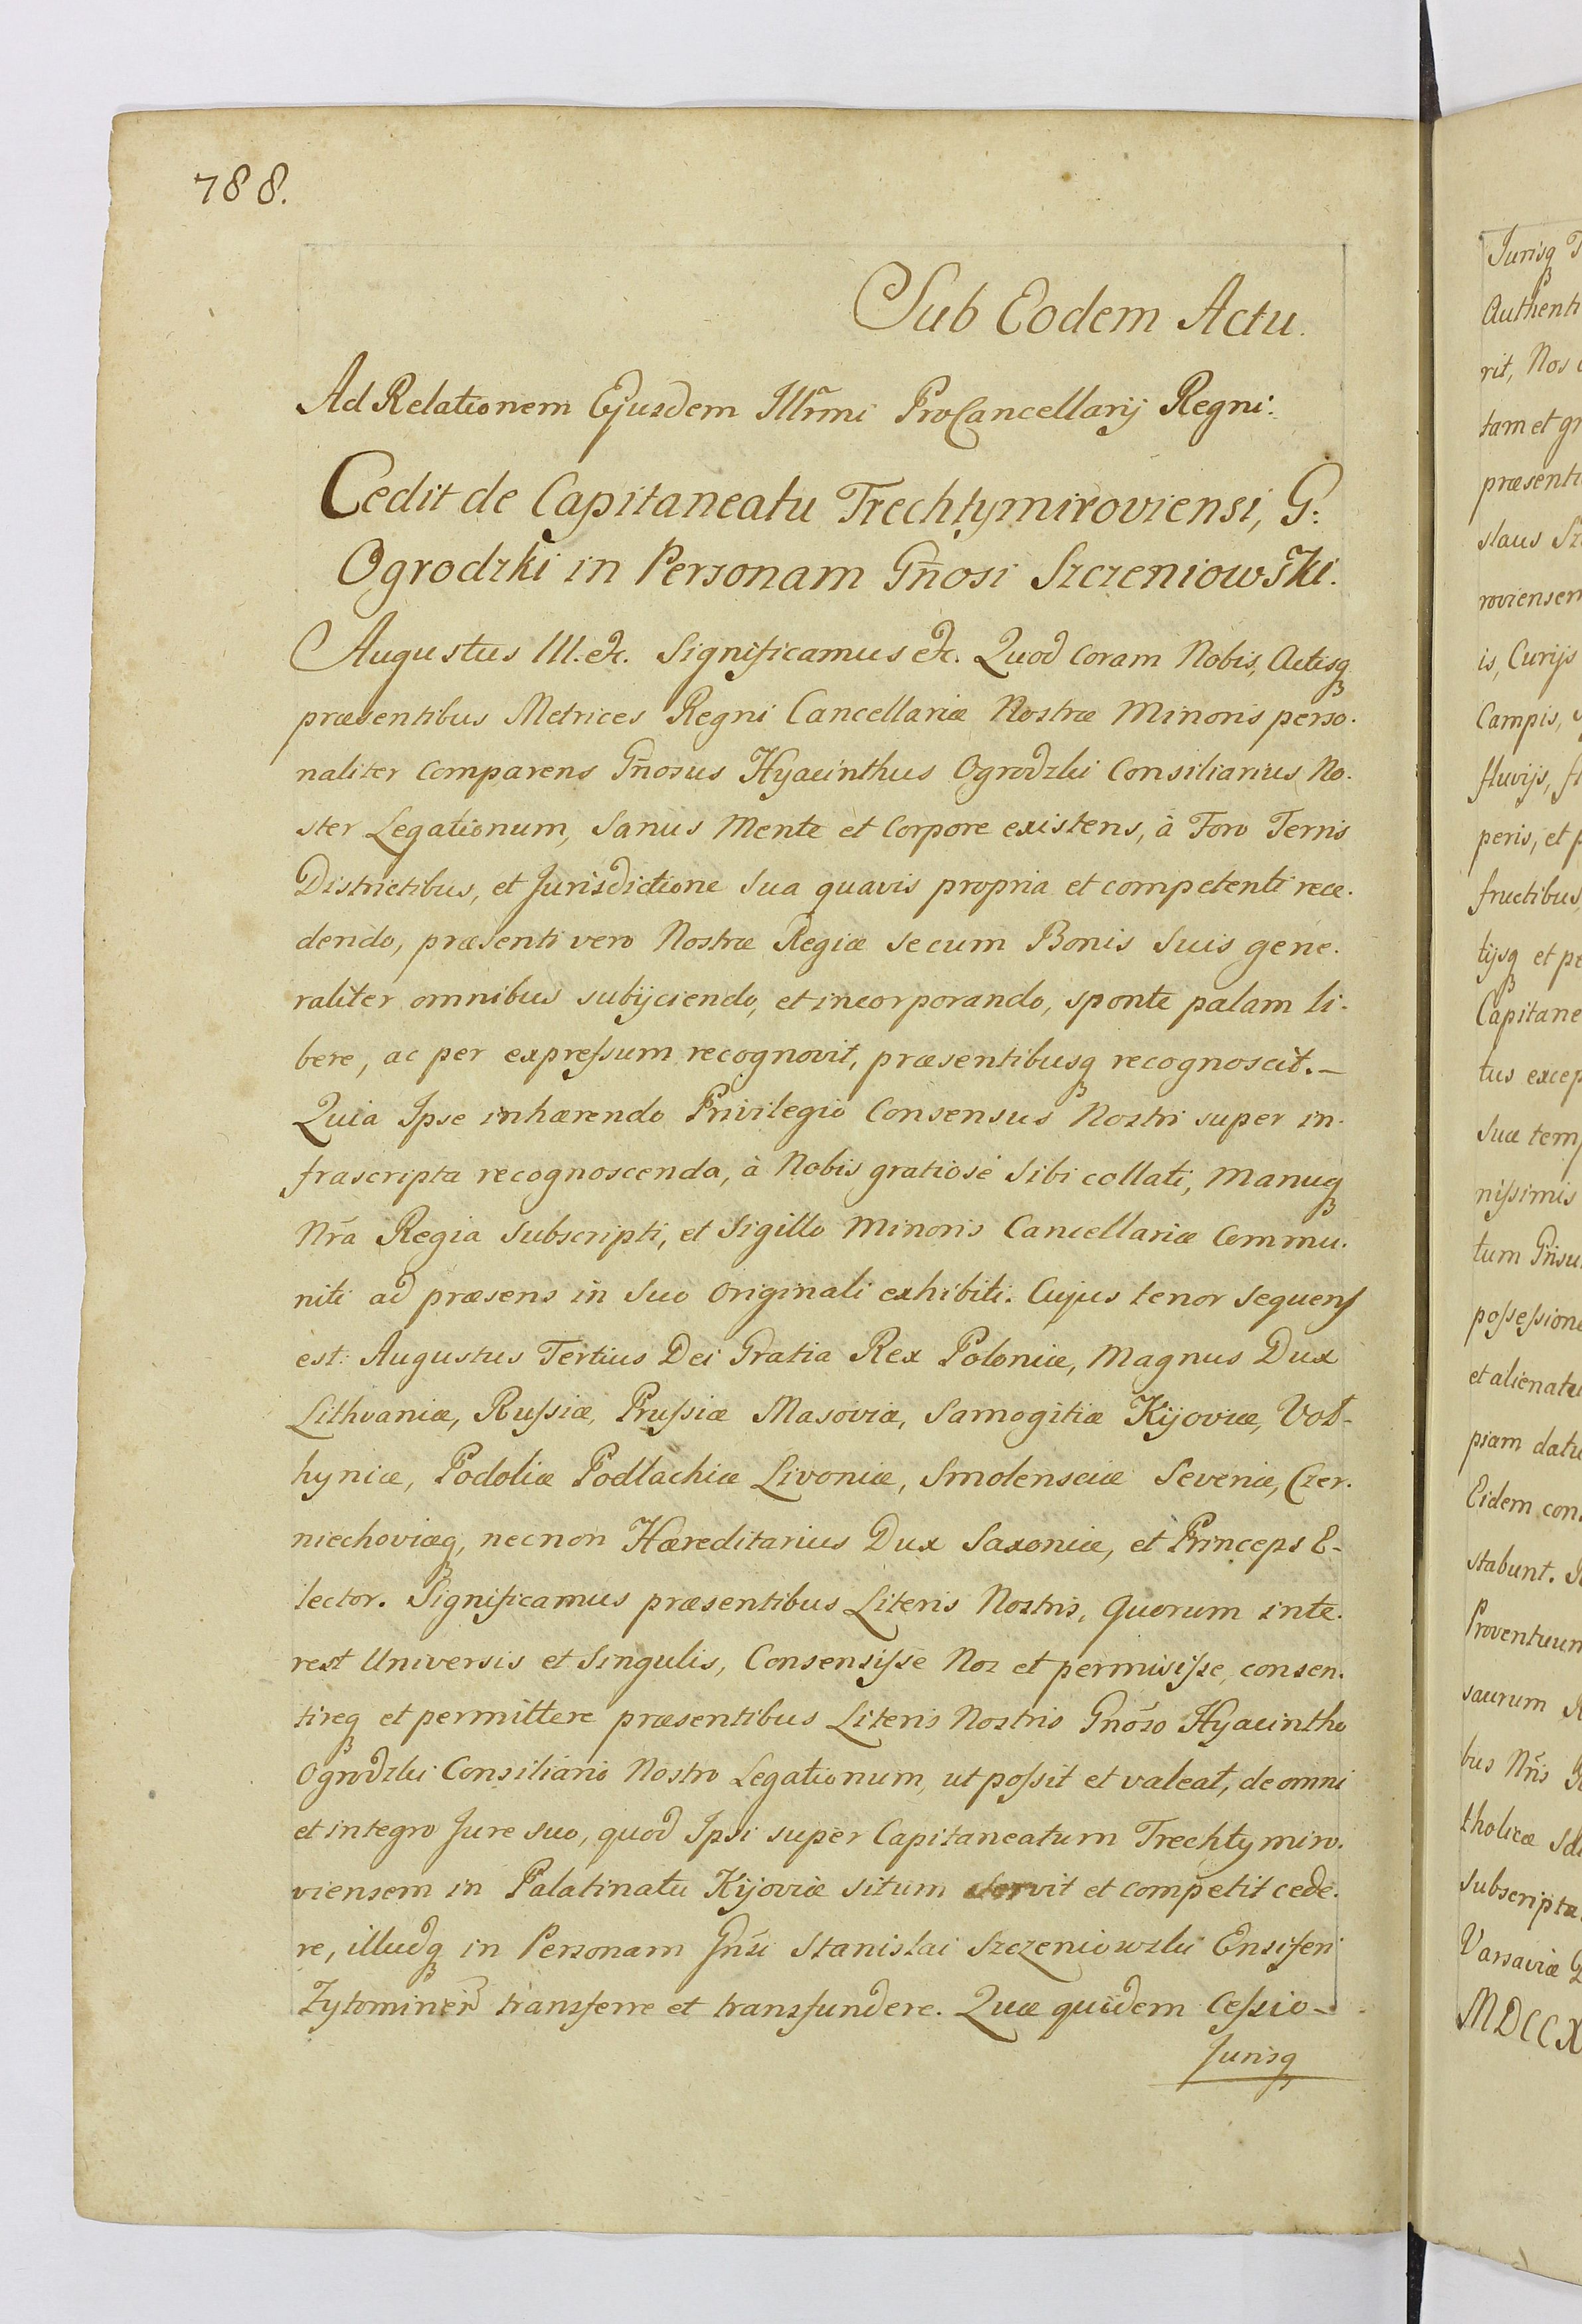 788.
Sub Eodem Actu.
Ad Relationem Ejusdem Illr̃mi ProCancellarij Regni:
Cedit de Capitaneatu Trechtymiroviensi, G:
Ogrodzki in Personam Gñosi Szczeniowski.
Augustus III. etc. Significamus etc. Quod coram Nobis, Actisq̃
præsentibus Metrices Regni Cancellariæ Nostræ Minoris perso-
naliter Comparens Gñosus Hyacinthus Ogrodzki Consiliarius No-
ster Legationum, Sanus Mente et Corpore existens, à Foro Terris
Districtibus, et Jurisdictione Sua quavis propria et competenti rece-
dendo, præsenti vero Nostræ Regiæ secum Bonis Suis gene-
raliter omnibus subijciendo, et incorporando, sponte palam li-
bere, ac per expreſsum recognovit, præsentibusq̃ recognoscit. –
Quia Ipse inhærendo Privilegio Consensus Nostri super in-
frascripta recognoscenda, à Nobis gratiosè Sibi collati, Manuq̃
Nr̃a Regia Subscripti, et Sigillo Minoris Cancellariæ Commu-
niti ad præsens in Suo Originali exhibiti. Cujus tenor sequens
est: Augustus Tertius Dei Gratia Rex Poloniæ, Magnus Dux
Lithvaniæ, Ruſsiæ, Pruſsiæ Masoviæ, Samogitiæ Kijoviæ, Vol-
hyniæ, Podoliæ Podlachiæ Livoniæ, Smolensciæ Severiæ, Czer-
niechoviæq̃, necnon Hæreditarius Dux Saxoniæ, et Princeps E-
lector. Significamus præsentibus Literis Nostris, quorum inte-
rest Universis et Singulis, Consensiſse Nos et permisiſse, consen-
tireq̃ et permittere præsentibus Literis Nostris Gnõso Hyacintho
Ogrodzki Consiliario Nostro Legationum, ut poſsit et valeat, de omni
et integro Jure suo, quod Ipsi super Capitaneatum Trechtymiro-
viensem in Palatinatu Kijoviæ situm servit et competit cede-
re, illudq̃ in Personam Gñsi Stanislai Szczeniowski Ensiferi
transferre et transfundere. Quæ quidem Ceſsio –
Jurisq̃
Jurisq̃
Authenti
rit, Nos
tam et gr
præsenti
slaus Sz
roviensem
is, Curijs
Campis,
fluvijs, fl
peris, et p
fructibus,
tijsq̃ et pe
Capitane
tus excep
Suæ temp
niſsimis
tum Gñsu
poſseſsione
et alienatu
piam datu
Eidem con
stabunt.
Proventuum
saurum
bus Nr̃is
tholicæ
Subscripta
Varsaviæ
MDCCX